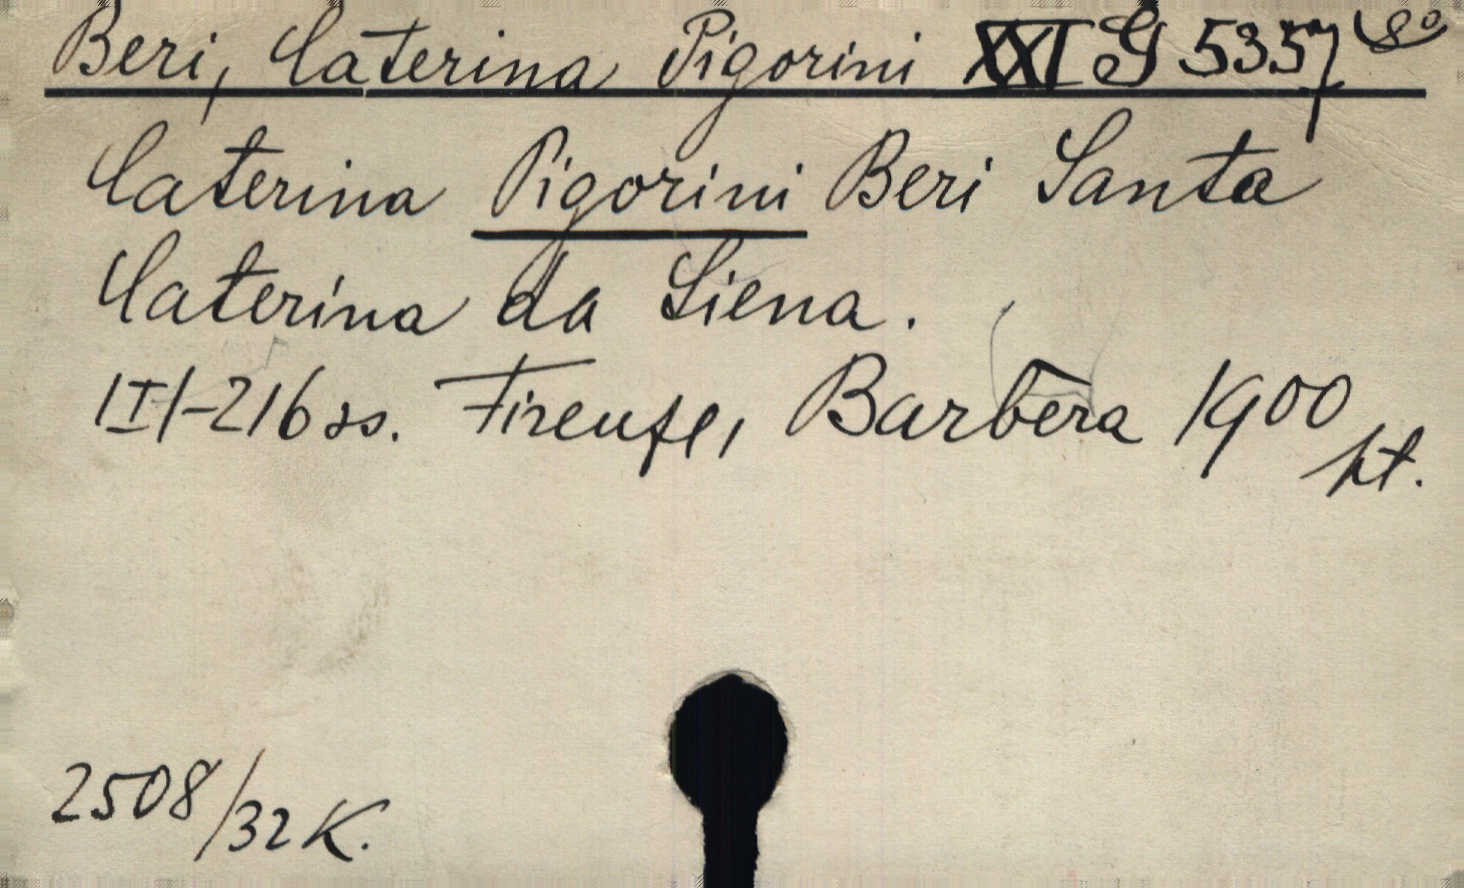 Beri, Caterina Pigorini XXI G 5357 8°
Caterina Pigorini Beri Santa
Caterina da Siena.
III-216 ss. Firenze, Barbèra 1900
pt.
2508/32 K.